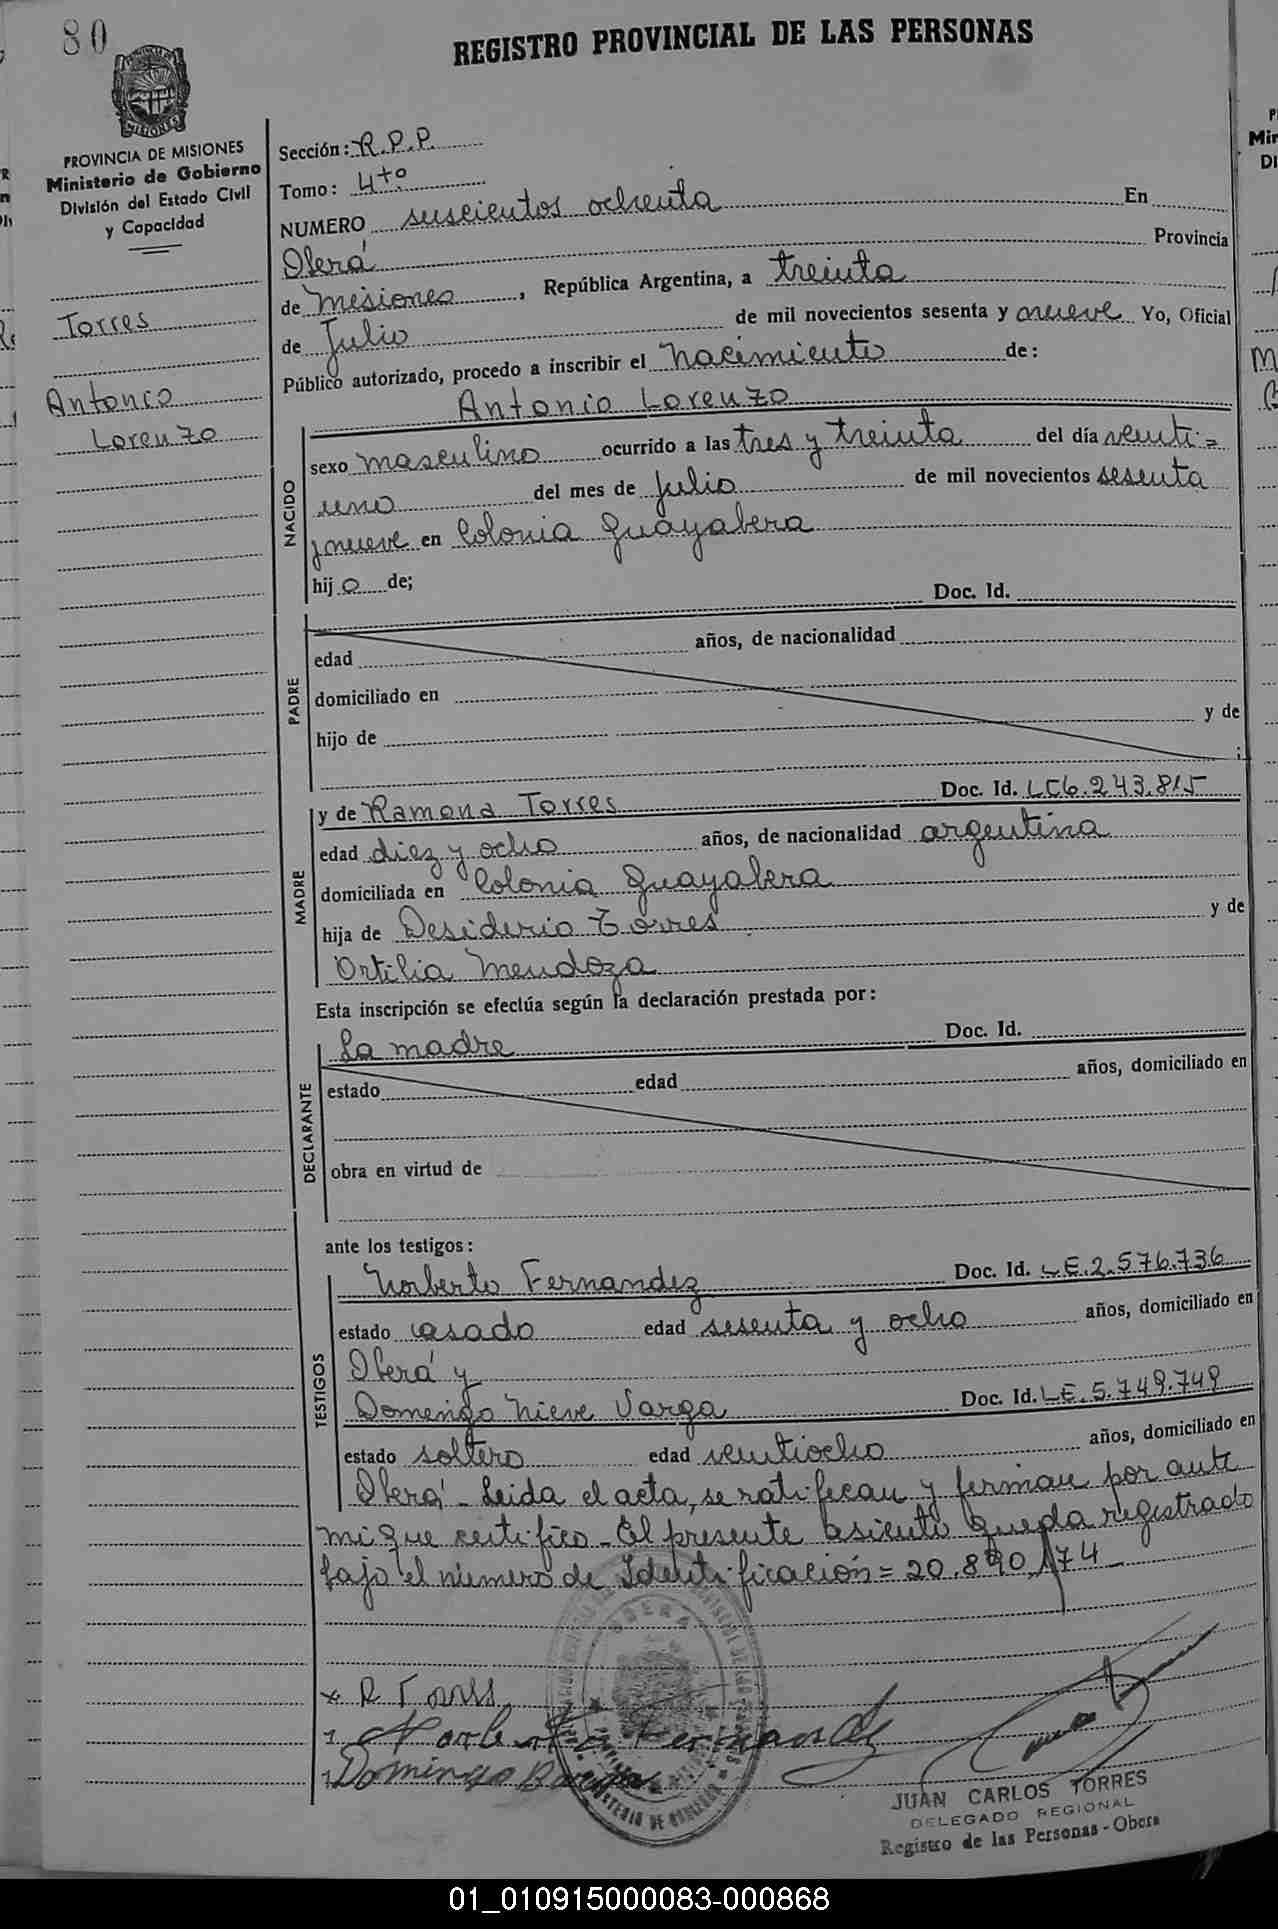 80
REGISTRO PROVINCIAL DE LAS PERSONAS
PROVINCIA DE MISIONES
Ministerio de Gobierno
División del Estado Civil
y Capacidad
Torres
Antonio
Lorenzo
Sección: R.P.P.
Tomo: 4to
NUMERO suscientos ochenta En
Oberá Provincia
de Misiones, República Argentina, a treinta
de Julio de mil novecientos sesenta y nueve Yo, Oficial
Público autorizado, procedo a inscribir el Nacimiento de:
Antonio Lorenzo
NACIDO
sexo masculino ocurrido a las tres y treinta del día venti=
uno del mes de Julio de mil novecientos sesenta
y nueve en Colonia Guayabera
hijo de;
PADRE
Doc. Id.
edad años, de nacionalidad
domiciliado en
hijo de y de
;
MADRE
y de Ramona Torres Doc. Id. LC6.243.815
edad diez y ocho años, de nacionalidad argentina
domiciliada en Colonia Guayabera
hija de Desiderio Torres y de
Ortilia Mendoza
Esta inscripción se efectúa según la declaración prestada por:
DECLARANTE
La madre Doc. Id.
estado edad años, domiciliado en
obra en virtud de
ante los testigos:
TESTIGOS
Norberto Fernandez Doc. Id. LE.2.576.736
estado casado edad sesenta y ocho años, domiciliado en
Oberá y
Domingo Nieve Varga Doc. Id. LE.5.749.749
estado soltero edad ventiocho años, domiciliado en
Oberá - Leida el acta, se ratifican y firman por ante
mi que certifico - El presente asiento queda registrado
bajo el número de Identificación = 20.890.174
x R Torres
Norberto Fernandez
Domingo Varga
OBERA
JUAN CARLOS TORRES
DELEGADO REGIONAL
Registro de las Personas - Obera
01_010915000083-000868